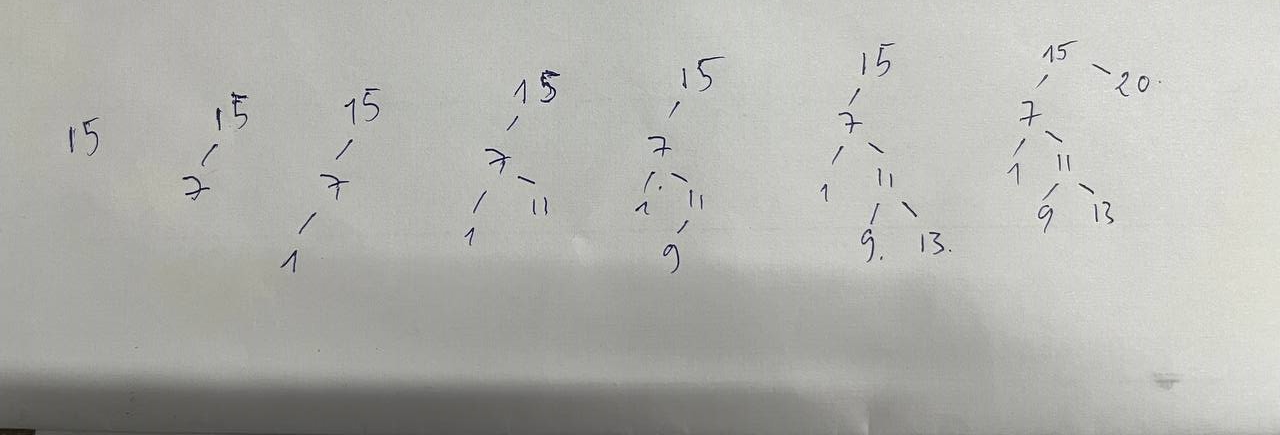 15
15
7
15
7
1
15
7
1 11
15
7
1 11
9
15
7
1 11
9. 13.
15 20.
7
1 11
9 13